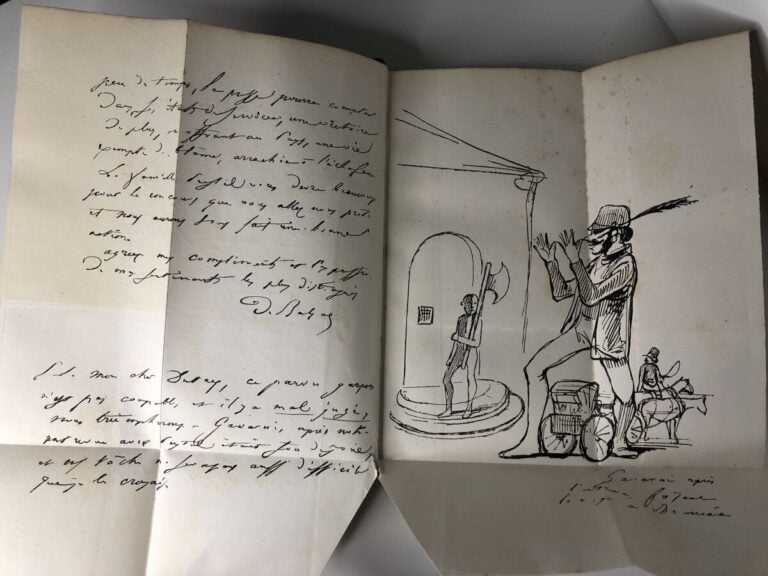 peu de temps, la presse pourra compter
dans ses états de services, une victoire
de plus, en offrant au Pays, une vie
exempte de blâme, arrachée à l'échafaud
La famille Peytel vous devra beaucoup
pour le concours que vous allez nous prêter
et nous aurons tous fait une bonne
action.
agréez mes compliments et l'expression
de mes sentiments les plus distingués
De Balzac
mon cher Dutacq, ce pauvre garçon
n'est pas coupable, et il y a mal jugé,
nous triompherons, Gavarni, après notre
avec Peytel était fou de joie,
et tâche n'est pas aussi difficile
que je le croyais.
Gavarni après